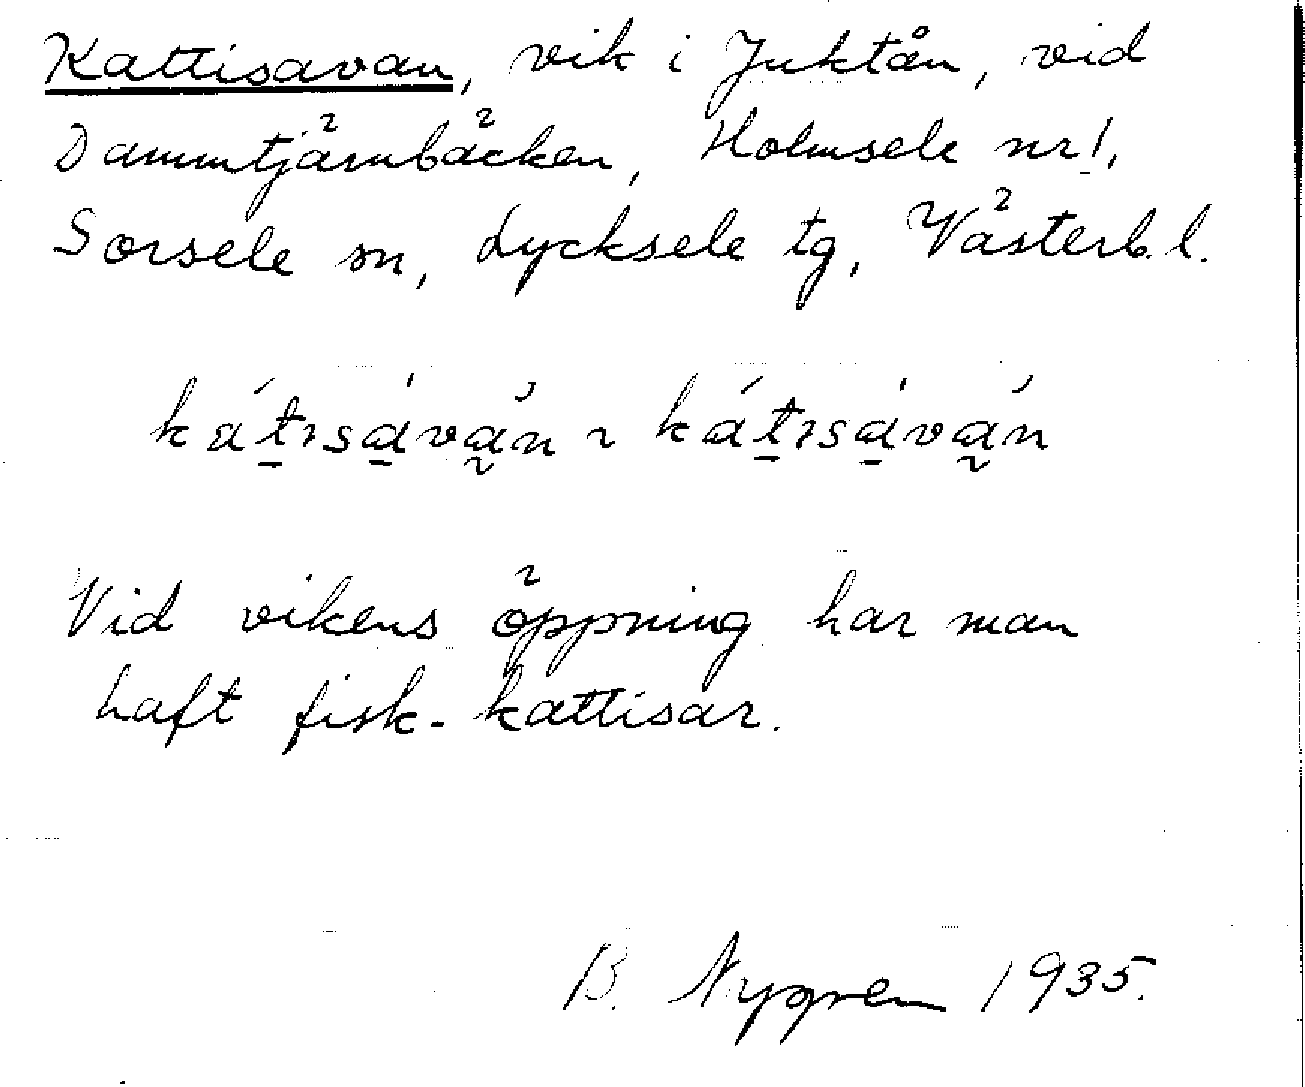 Kattisavan, vik i Juktån, vid
Dammtjärnbäcken, Holmsele nr 1,
Sorsele sn, Lycksele tg, Västerb. l.
kátısávàn ~ kátısávàn
Vid vikens öppning har man
haft fisk-kattisar.
B. Nygren 1935.